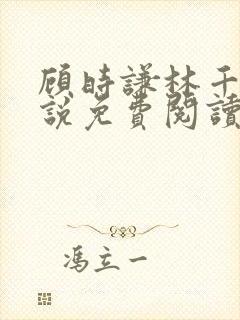 顾時謙林千
說免費閱讀
馮立一